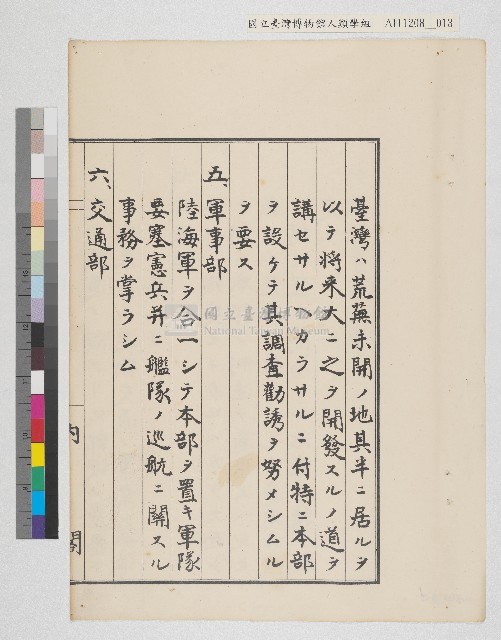 國立臺灣博物館人類學組 AH1208__013
臺灣ハ荒蕪未開ノ地其半ニ居ルヲ
以テ将来大ニ之ヲ開發スルノ道ヲ
講セサルヘカラサルニ付特ニ本部
ヲ設ケテ其調査勸誘ヲ努メシムル
ヲ要ス
五、軍事部
陸海軍ヲ合一シテ本部ヲ置キ軍隊
要塞憲兵并ニ艦隊ノ巡航ニ關スル
事務ヲ掌ラシム
六、交通部
內閣
國立臺灣博物館
National Taiwan Museum